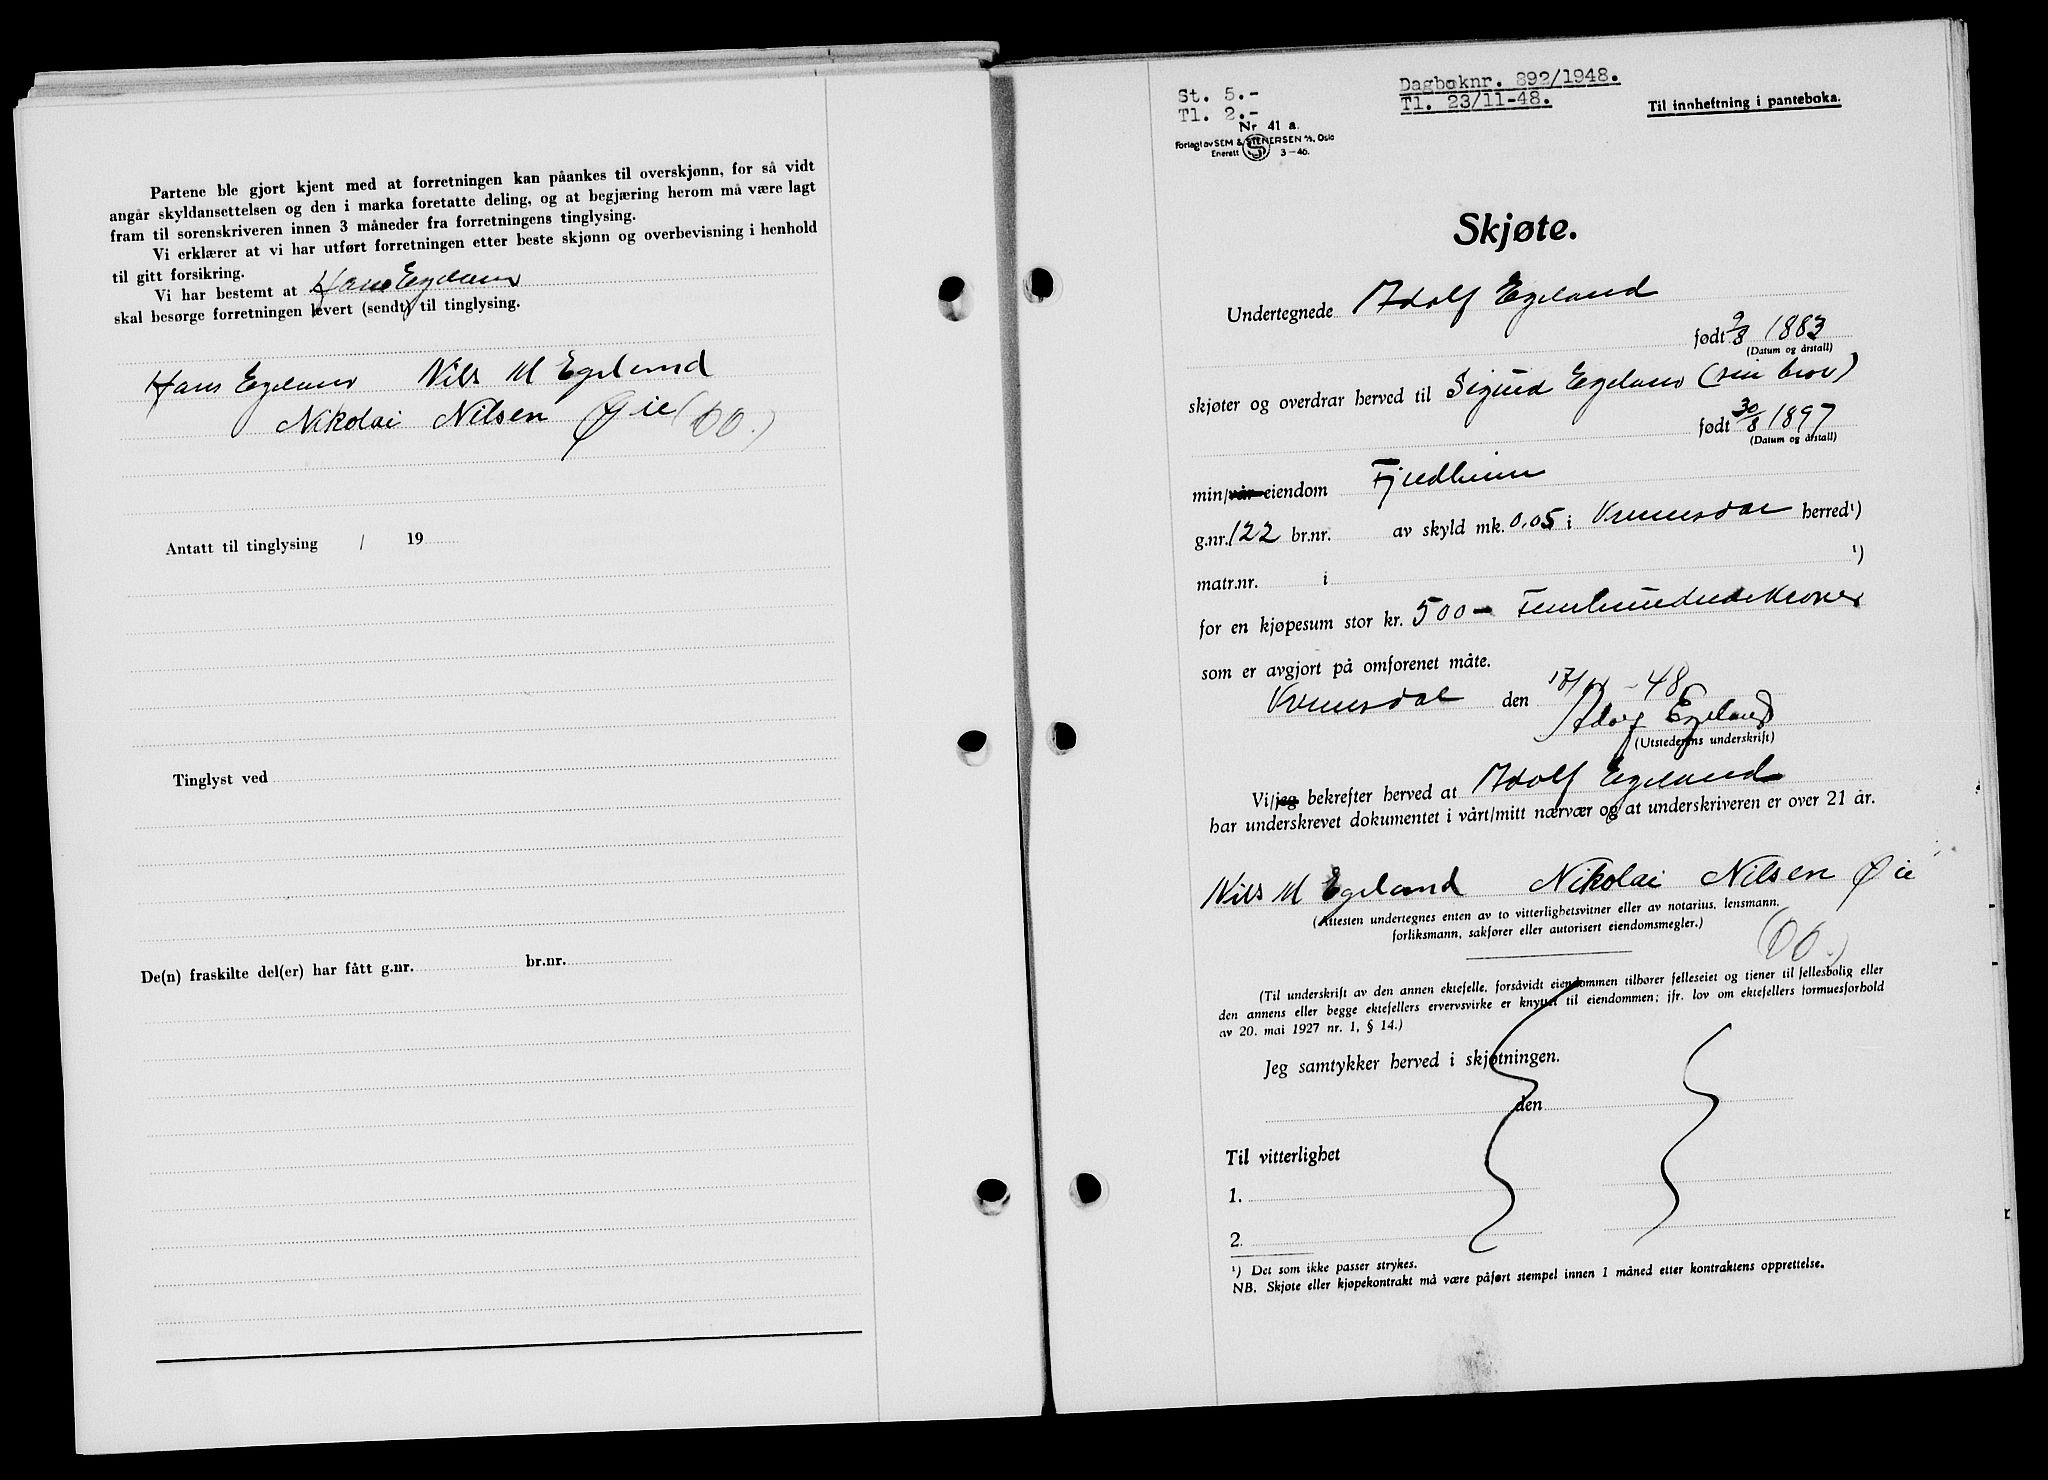 Partene ble gjort kjent med at forretningen kan påankes til overskjønn, for så vidt
angår skyldansettelsen og den i marka foretatte deling, og at begjæring herom må være lagt
fram til sorenskriveren innen 3 måneder fra forretningens tinglysing.
Vi erklærer at vi har utført forretningen etter beste skjønn og overbevisning i henhold
til gitt forsikring.
Vi har bestemt at Hans Egeland
skal besørge forretningen levert (sendt) til tinglysing.
Hans Egeland Nils M Egeland
Nikolai Nilsen Øie
Antatt til tinglysing / 19
Tinglyst ved
De(n) fraskilte del(er) har fått g.nr. br.nr.
St. 5.-
Tl. 2.-
Dagboknr. 892/1948.
Tl. 23/11-48.
Til innheftning i panteboka.
Nr 41 a.
Forlagt av SEM & STENERSEN A/S, Oslo
Enerett S 3-46.
Skjøte.
Undertegnede Adolf Egeland
født 9/8 1883
(Datum og årstall)
skjøter og overdrar herved til Sigurd Egeland (min bror)
født 30/8 1897
(Datum og årstall)
min/vår eiendom Fjedheim
g.nr. 122 br.nr. av skyld mk. 0,05 i Kvinesdal herred¹)
matr.nr. i ¹)
for en kjøpesum stor kr. 500 - Femhundrede Kroner
som er avgjort på omforenet måte.
Kvinesdal den 17/11 - 48
Adolf Egeland
(Utstederens underskrift)
Vi/jeg bekrefter herved at Adolf Egeland
har underskrevet dokumentet i vårt/mitt nærvær og at underskriveren er over 21 år.
Nils M Egeland Nikolai Nilsen Øie
(Attesten undertegnes enten av to vitterlighetsvitner eller av notarius, lensmann,
forliksmann, sakfører eller autorisert eiendomsmegler.)
(Til underskrift av den annen ektefelle, forsåvidt eiendommen tilhører felleseiet og tjener til fellesbolig eller
den annens eller begge ektefellers ervervsvirke er knyttet til eiendommen; jfr. lov om ektefellers formuesforhold
av 20. mai 1927 nr. 1, § 14.)
Jeg samtykker herved i skjøtningen.
den
Til vitterlighet
1.
2.
¹) Det som ikke passer strykes.
NB. Skjøte eller kjøpekontrakt må være påført stempel innen 1 måned etter kontraktens opprettelse.